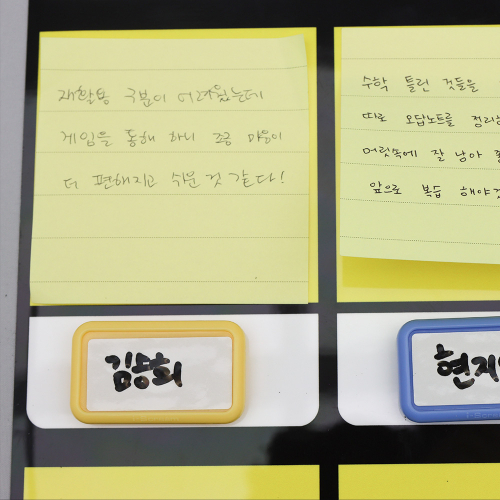 재활용 구분이 어려웠는데
게임을 통해 하니 조금 마음이
더 편해지고 쉬운 것 같다!
수학 틀린 것들을
따로 오답노트를 정리
머릿속에 잘 남아
앞으로 복습 해야
현지